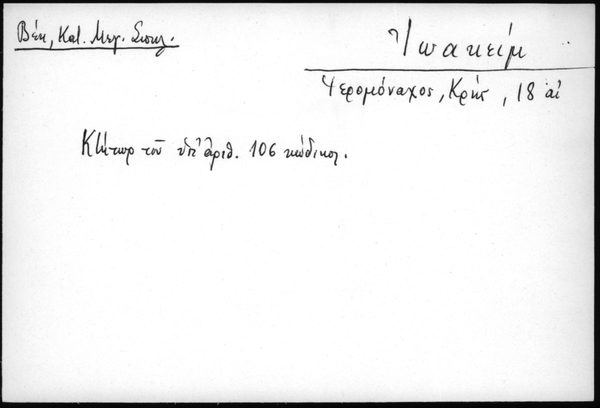 Βέη, Κατ. Μεγ. Σπηλ.
Ἰωακείμ
Ἱερομόναχος, Κρής, 18 αἰ
Κτήτωρ τοῦ ὑπ' ἀριθ. 106 κώδικος.